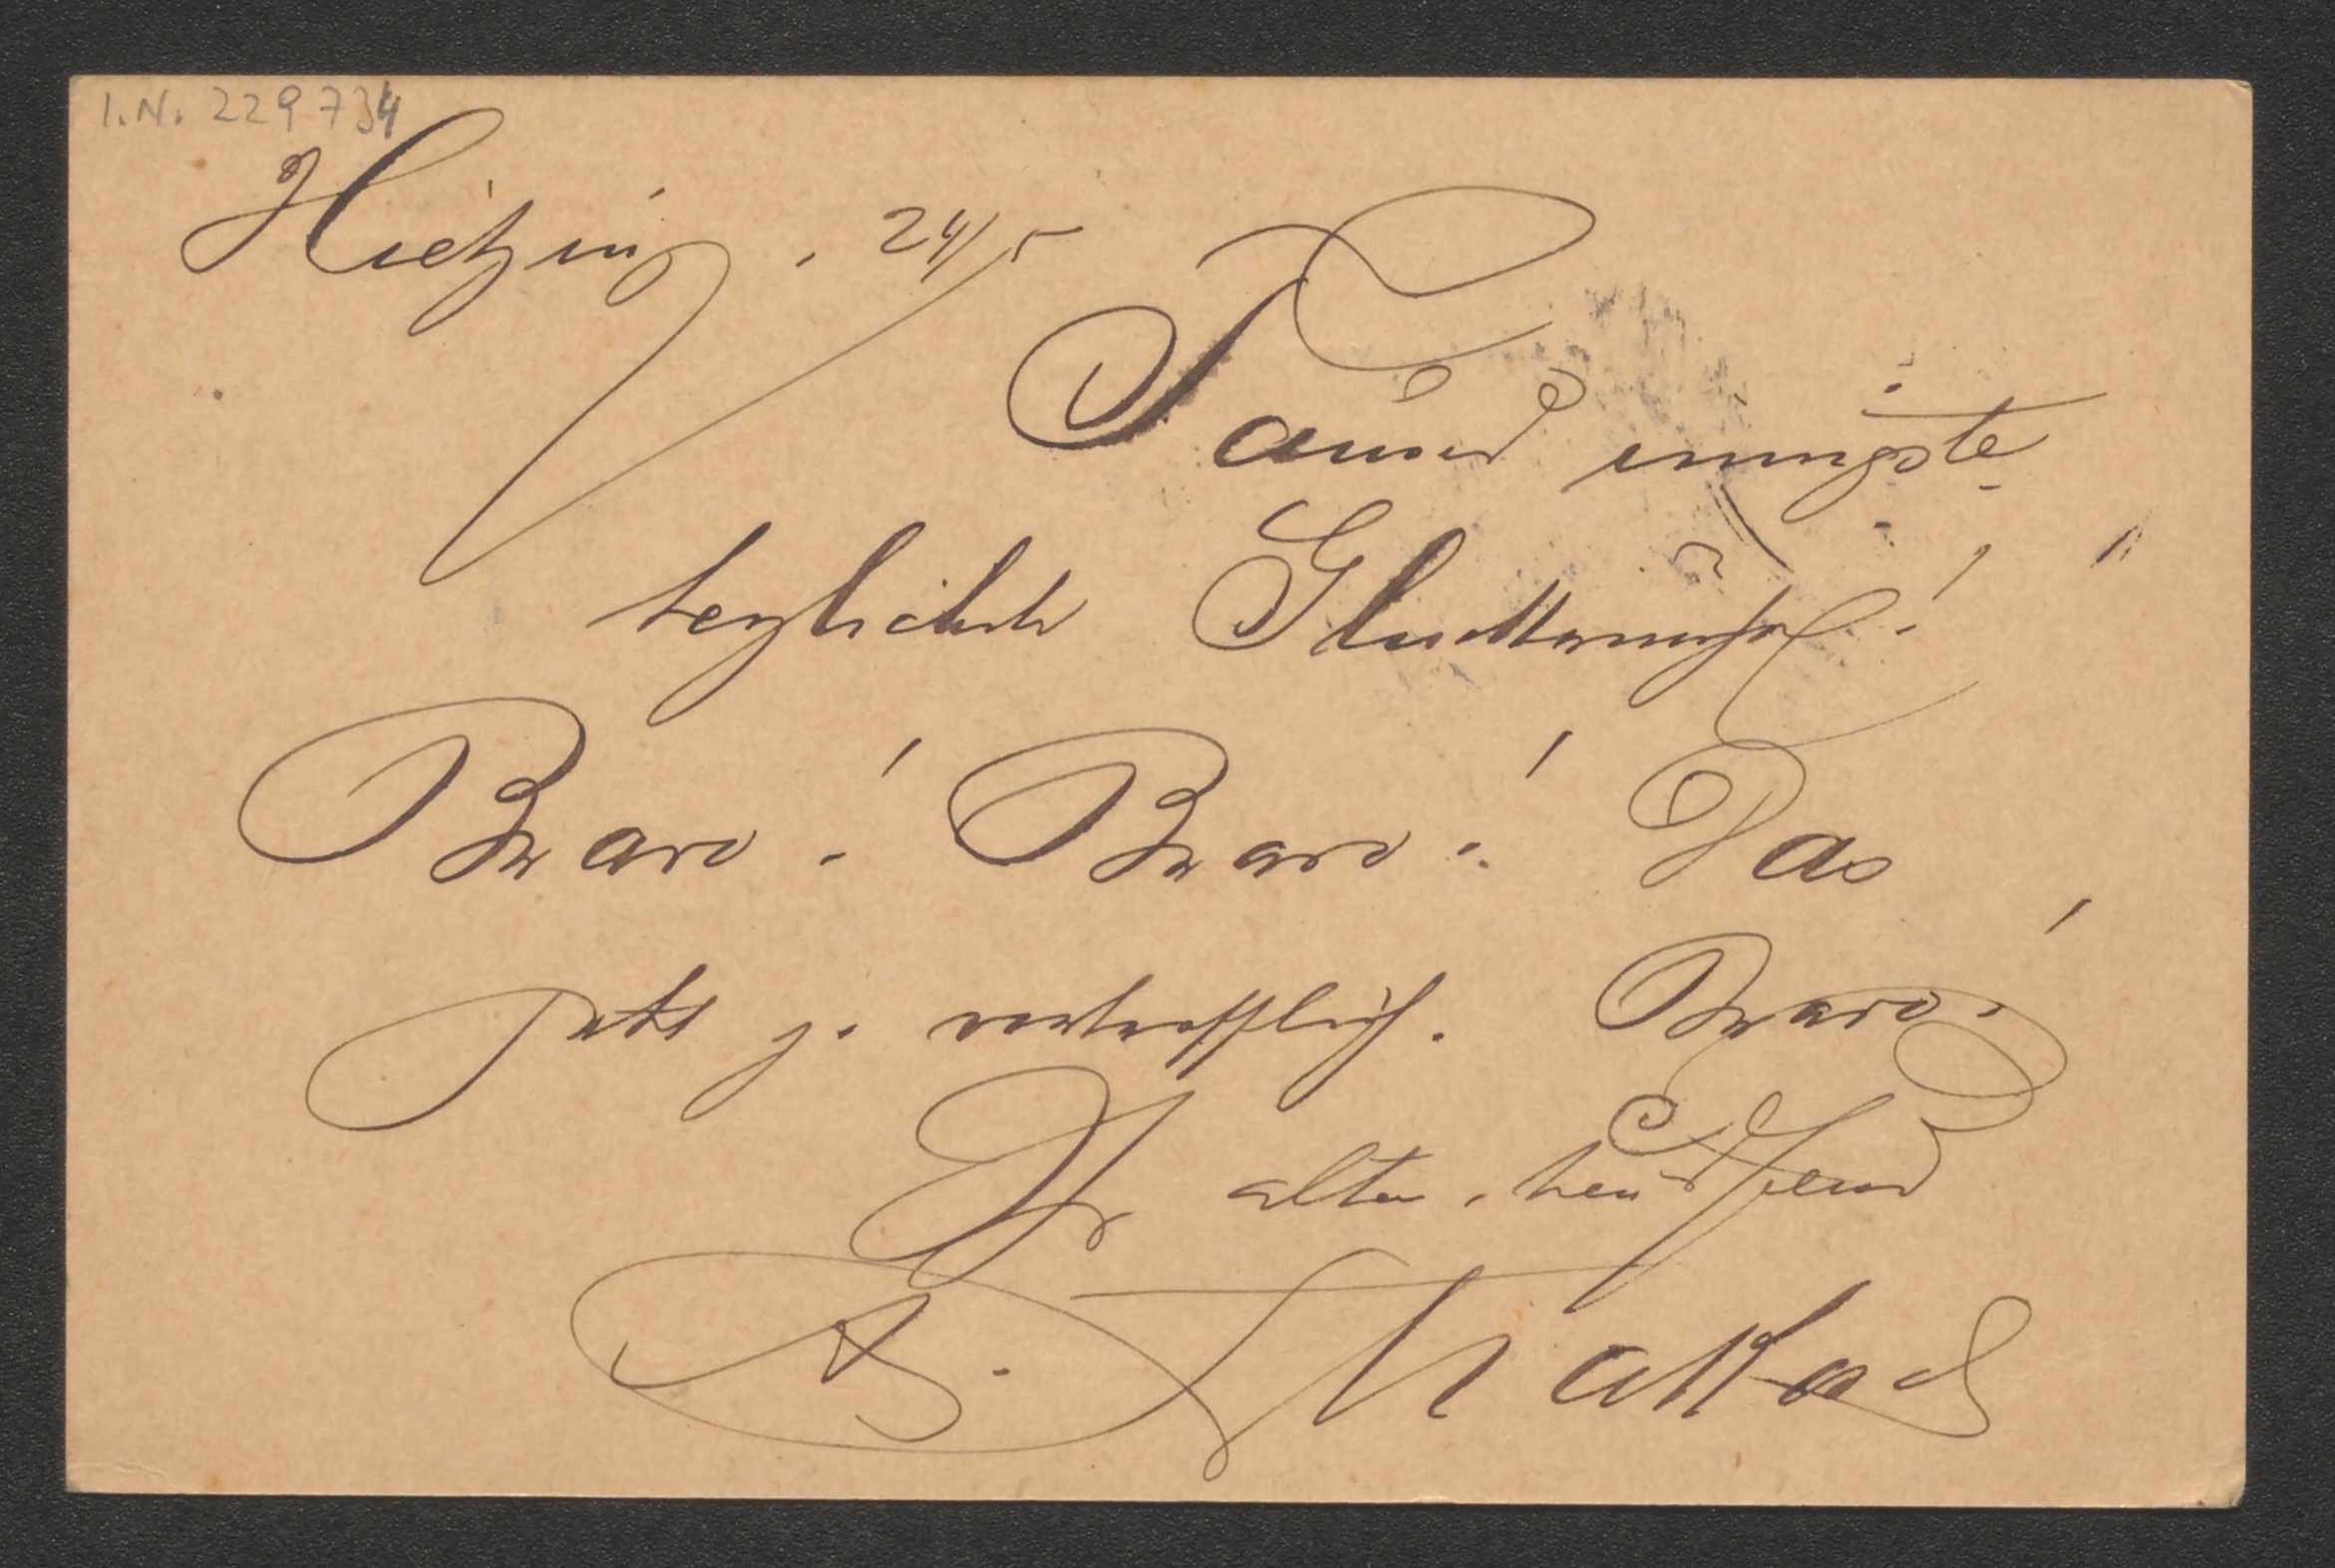 I.N. 229734
Hietzing, 24/5
Tausend innigste
herzlichste Glückwünsche!
Bravo! Bravo! Das
geht ja vortrefflich. Bravo!
Ihr alter, Freund